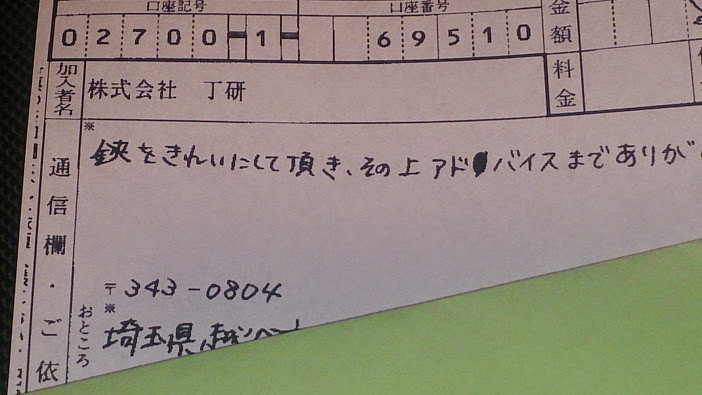 口座記号 口座番号 金額
02700-1- 69510
加入者名 株式会社 丁研 料金
※
鋏をきれいにして頂き、その上アドバイスまでありが
通信欄・ご依
〒343-0804
※
おところ 埼玉県